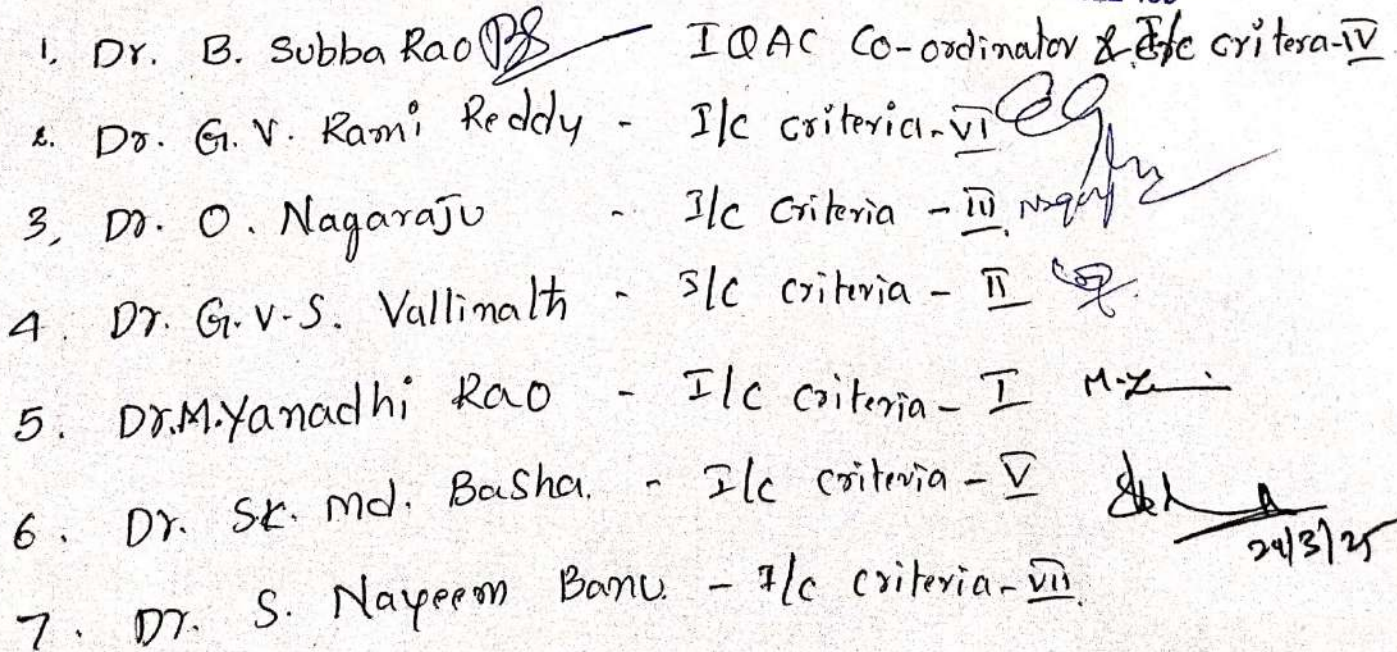 1. Dr. B. Subba Rao - IQAC Co-ordinator & I/c critera-IV
2. Dr. G. V. Rami Reddy - I/c criteria-VI
3. Dr. O. Nagaraju - I/c Criteria - III
4. Dr. G.V.S. Vallinath - I/c criteria - II
5. Dr.M.Yanadhi Rao - I/c criteria - I
6. Dr. SK. Md. Basha. - I/c criteria - V
24/3/25
7. Dr. S. Nayeem Banu. - I/c criteria-VII.